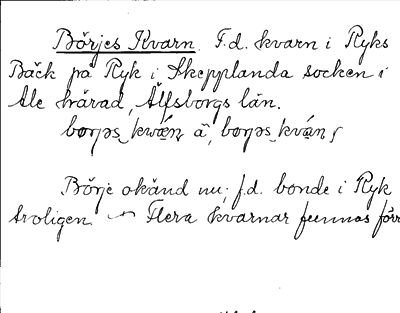 Börjes Kvarn. F.d. kvarn i Ryks
Bäck på Ryk i Skepplanda socken i
Ale härad, Älfsborgs län.
Börje okänd nu; f.d. bonde i Ryk
troligen. Flera kvarnar funnos förr